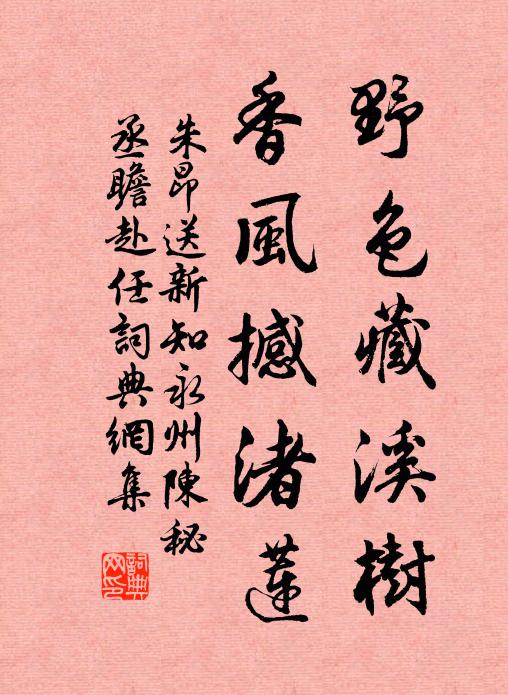 野色藏溪樹
香風撼渚蓮
朱昂送新知永州陳秘
丞瞻赴任詞典網集
詞典
網印